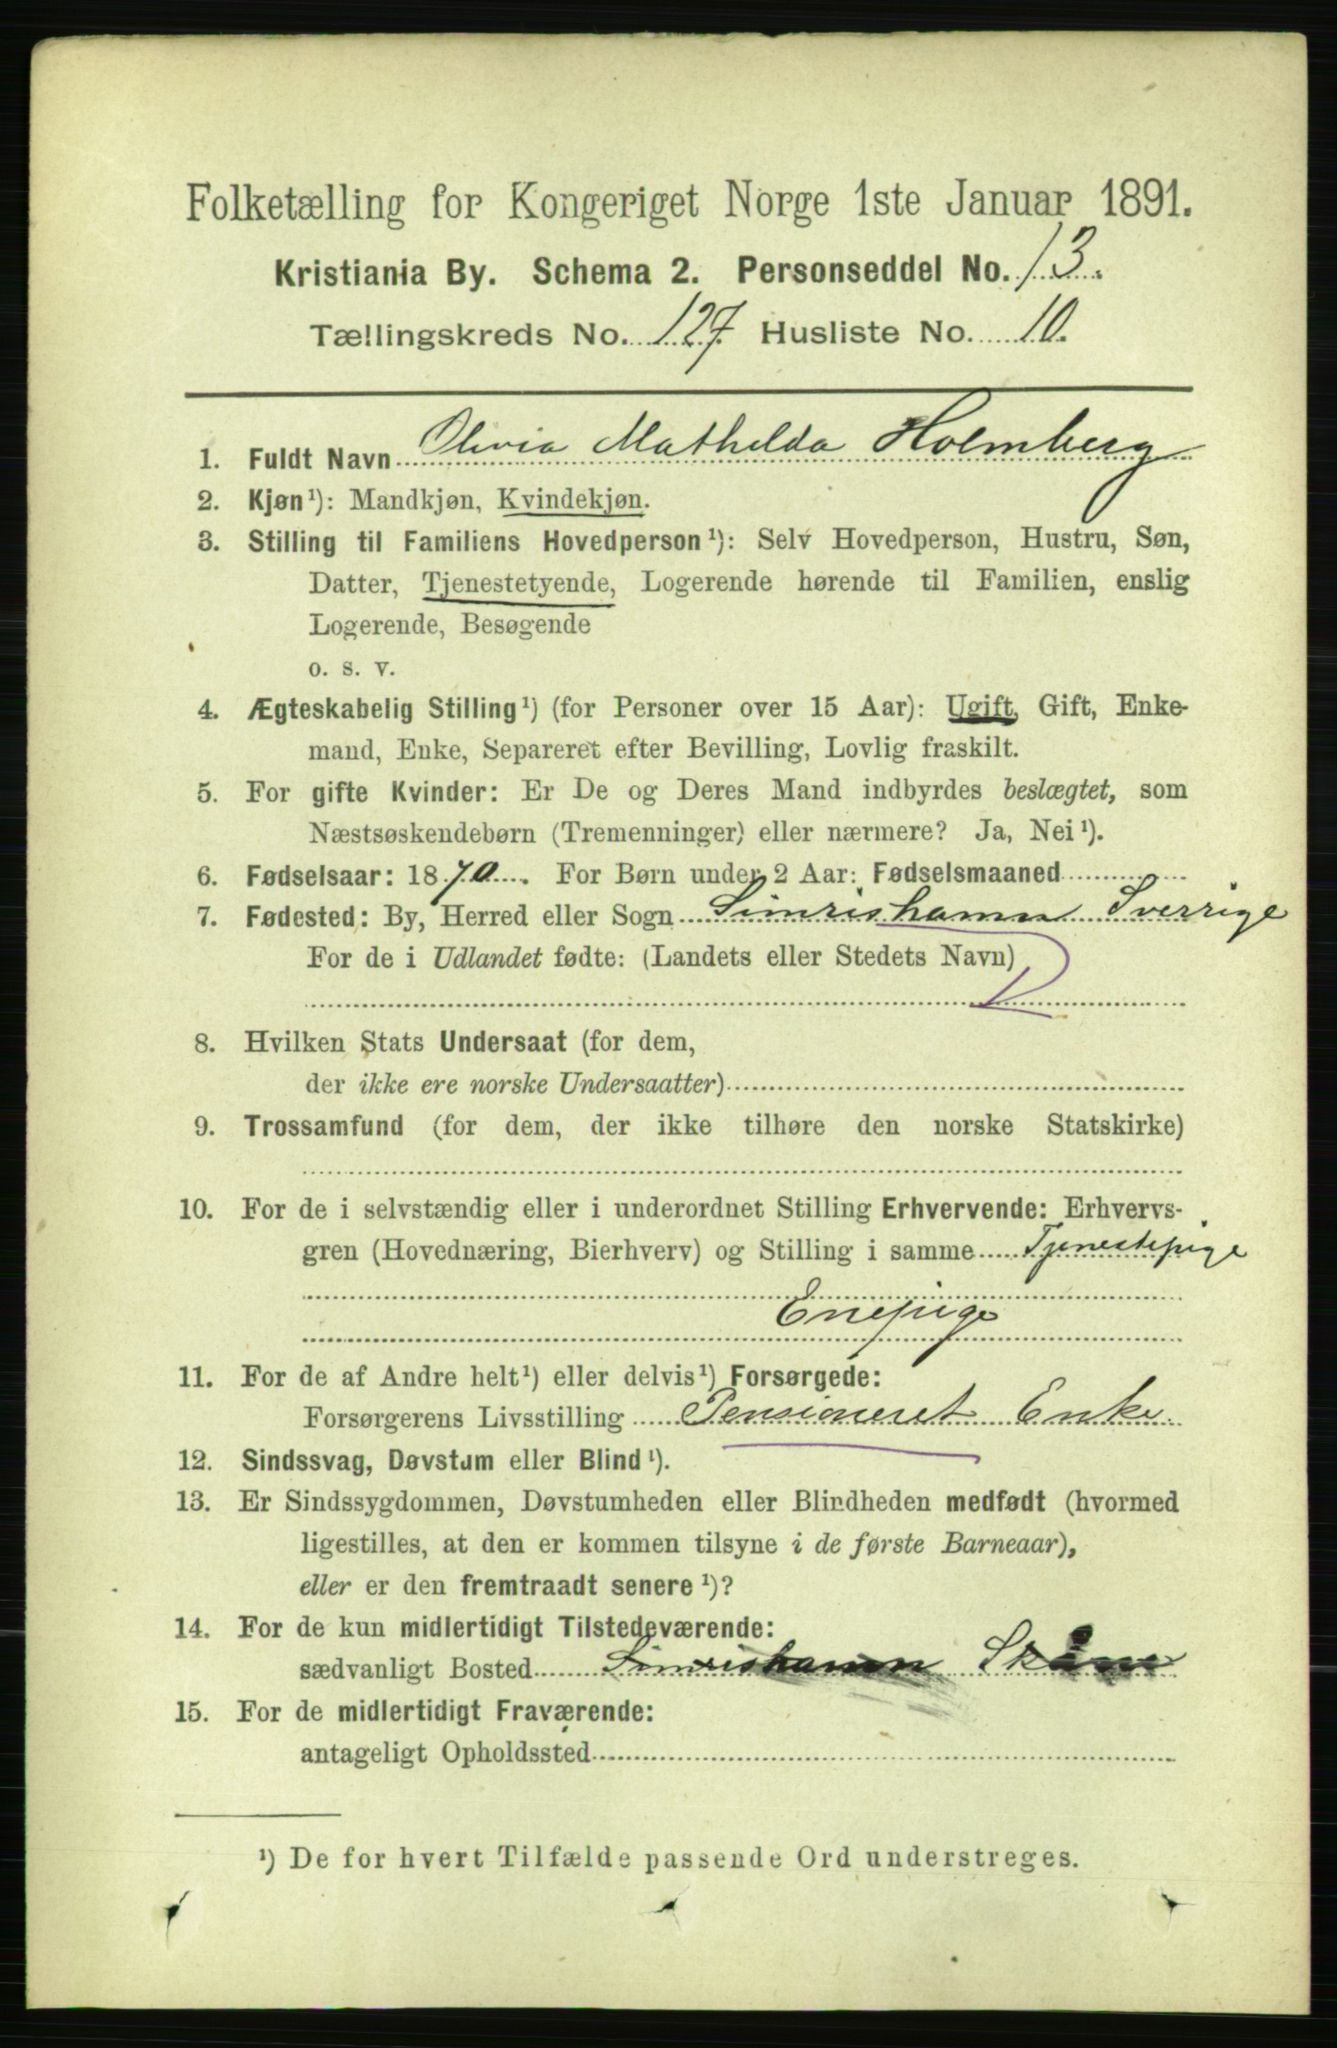 Folketælling for Kongeriget Norge 1ste Januar 1891.
Kristiania By. Schema 2. Personseddel No. 13.
Tællingskreds No. 127 Husliste No. 10.
1. Fuldt Navn Olivia Mathilda Holmberg
2. Kjøn¹): Mandkjøn, Kvindekjøn.
3. Stilling til Familiens Hovedperson¹): Selv Hovedperson, Hustru, Søn,
Datter, Tjenestetyende, Logerende hørende til Familien, enslig
Logerende, Besøgende
o. s. v.
4. Ægteskabelig Stilling¹) (for Personer over 15 Aar): Ugift, Gift, Enke-
mand, Enke, Separeret efter Bevilling, Lovlig fraskilt.
5. For gifte Kvinder: Er De og Deres Mand indbyrdes beslægtet, som
Næstsøskendebørn (Tremenninger) eller nærmere? Ja, Nei¹).
6. Fødselsaar: 1870. For Børn under 2 Aar: Fødselsmaaned
7. Fødested: By, Herred eller Sogn Simrishamn Sverrige
For de i Udlandet fødte: (Landets eller Stedets Navn)
8. Hvilken Stats Undersaat (for dem,
der ikke ere norske Undersaatter)
9. Trossamfund (for dem, der ikke tilhøre den norske Statskirke)
10. For de i selvstændig eller i underordnet Stilling Erhvervende: Erhvervs-
gren (Hovednæring, Bierhverv) og Stilling i samme Tjenestepige
Enepige
11. For de af Andre helt¹) eller delvis¹) Forsørgede:
Forsørgerens Livsstilling Pensioneret Enke.
12. Sindssvag, Døvstum eller Blind¹).
13. Er Sindssygdommen, Døvstumheden eller Blindheden medfødt (hvormed
ligestilles, at den er kommen tilsyne i de første Barneaar),
eller er den fremtraadt senere¹)?
14. For de kun midlertidigt Tilstedeværende:
sædvanligt Bosted Simrishamn Skåne
15. For de midlertidigt Fraværende:
antageligt Opholdssted
¹) De for hvert Tilfælde passende Ord understreges.